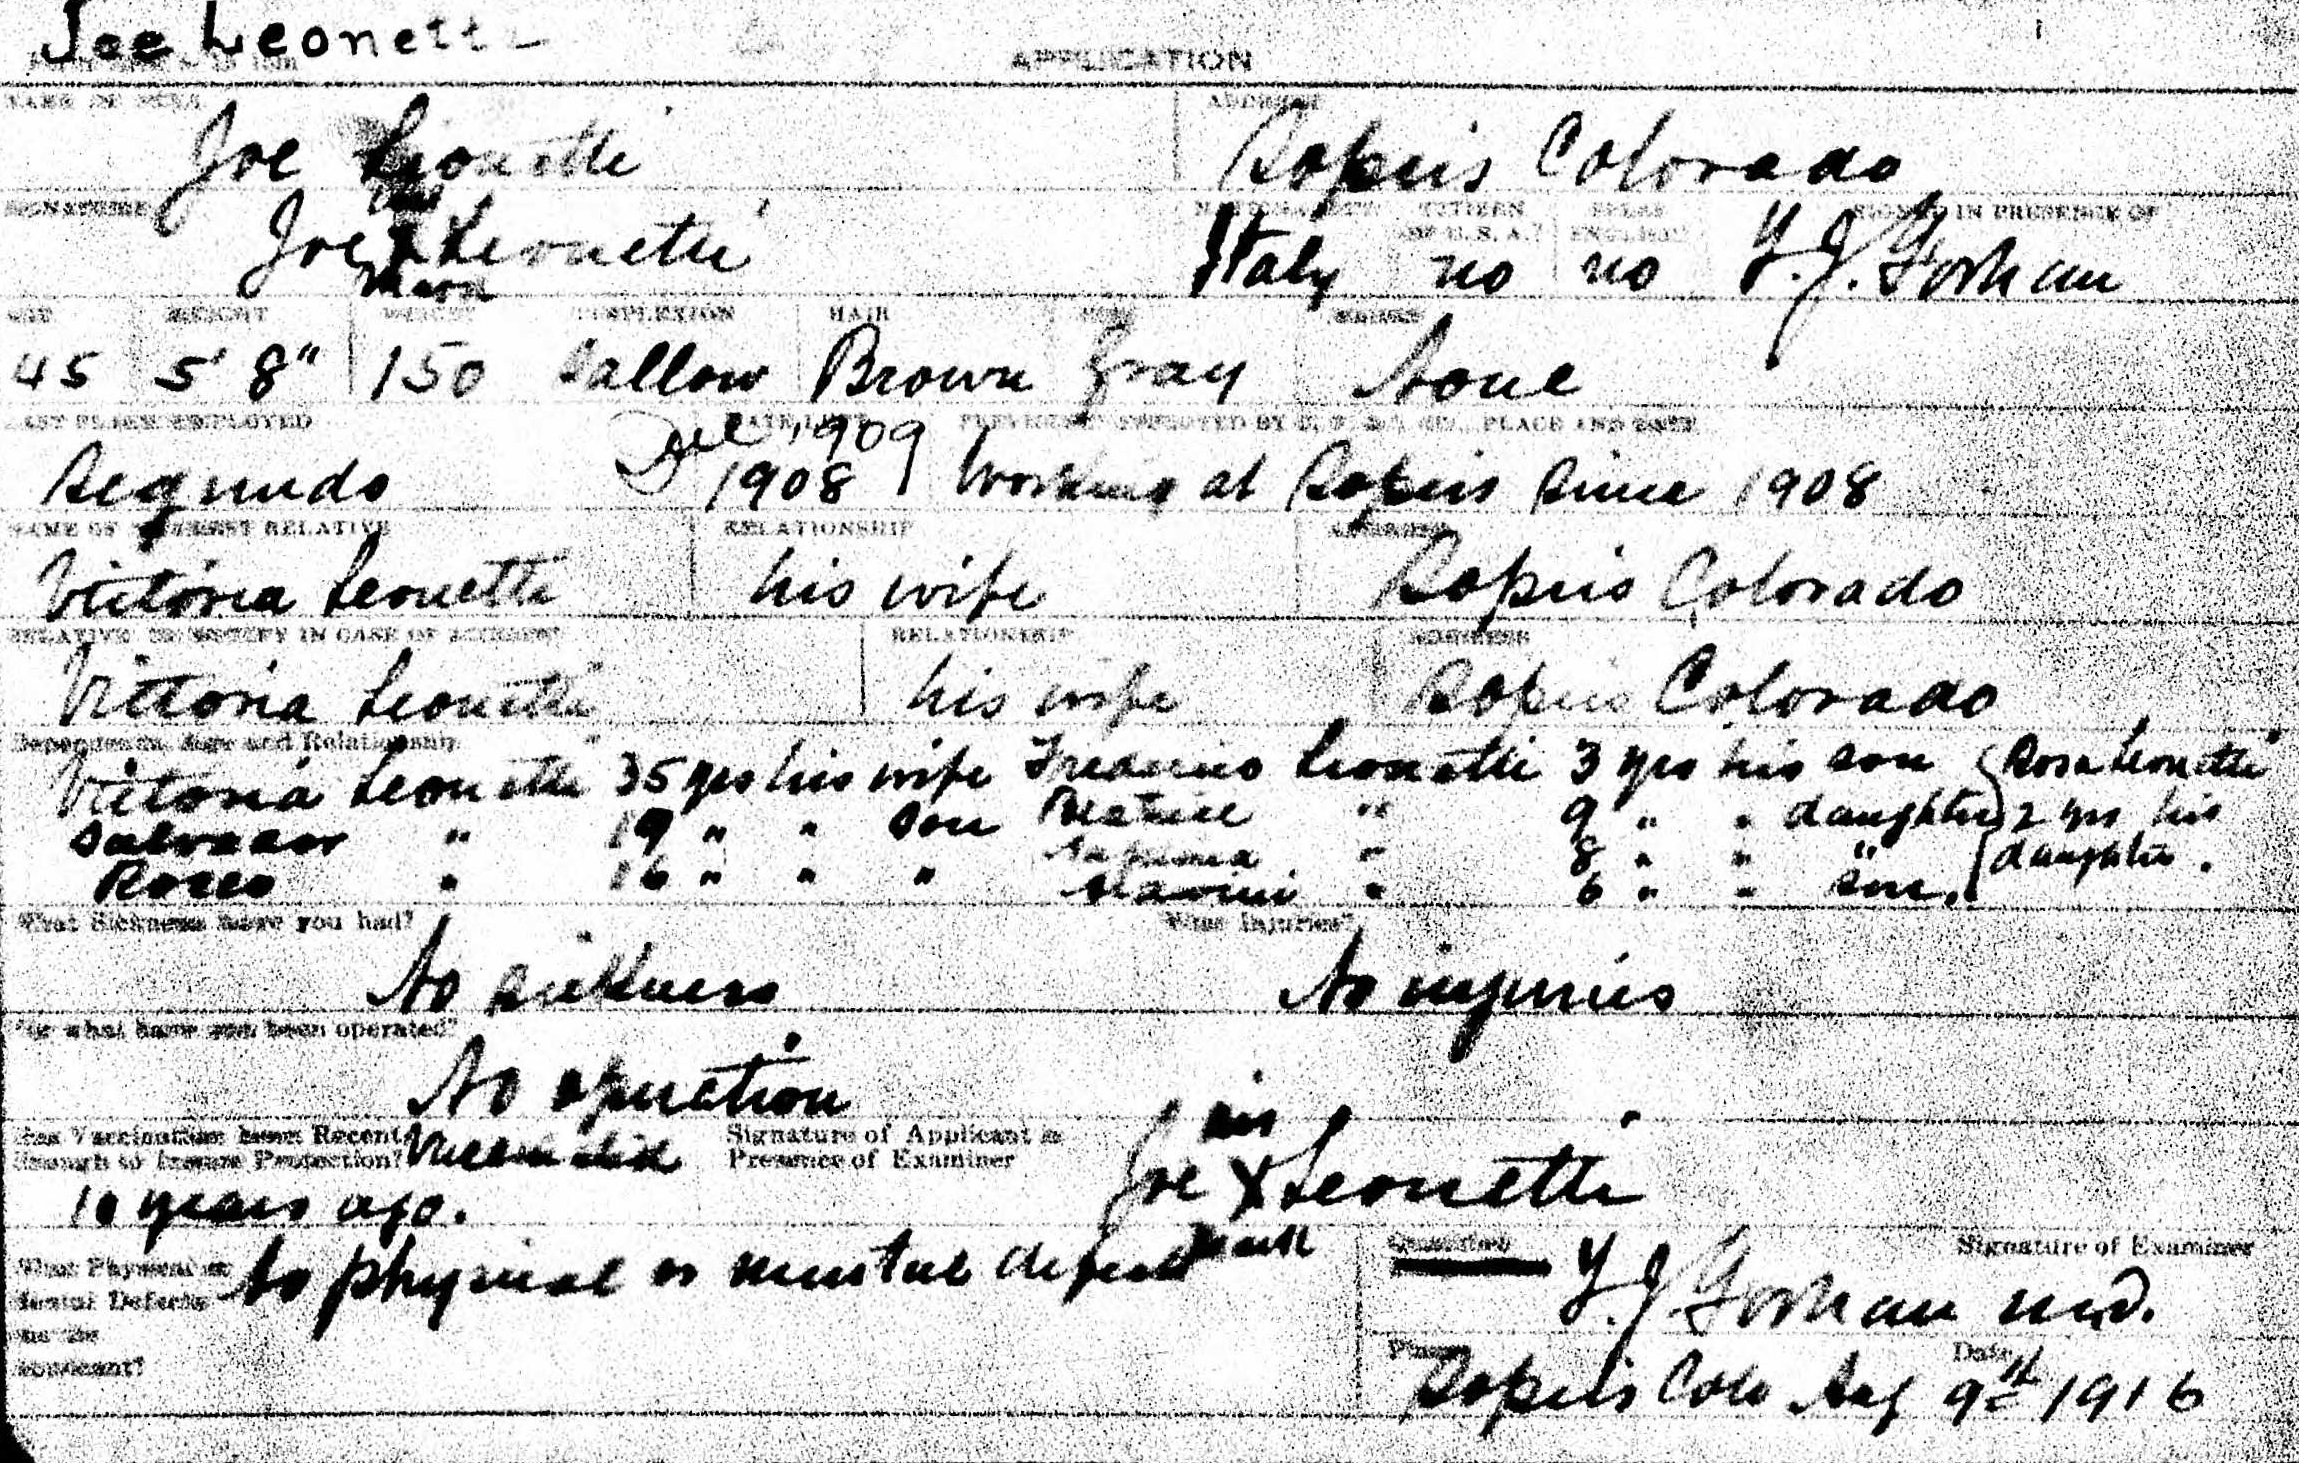 Joe Leonetti
APPLICATION
NAME IN FULL ADDRESS
Joe Leonetti Sopris Colorado
SIGNATURE NATIONALITY CITIZEN OF U.S.A.? SPEAK ENGLISH? SIGNED IN PRESENCE OF
his
Joe X Leonetti Italy no no T. J. Forhan
mark
AGE HEIGHT WEIGHT COMPLEXION HAIR EYES
45 5' 8" 150 Sallow Brown Gray None
LAST PLACE EMPLOYED DATE LEFT PREVIOUSLY EMPLOYED BY PLACE AND DATE
1909
Segundo 1908 Working at Sopris since 1908
NAME OF NEAREST RELATIVE RELATIONSHIP ADDRESS
Vittoria Leonetti his wife Sopris Colorado
RELATIVE TO NOTIFY IN CASE OF ACCIDENT RELATIONSHIP ADDRESS
Vittoria Leonetti his wife Sopris Colorado
Dependents, Age and Relationship
Vittoria Leonetti 35 yrs his wife Frederico Leonetti 3 yrs his son Rosa Leonetti
Salvador " 19 " " son Beatrice " 9 " " daughter 2 yrs his
Rocco " 16 " " " " 8 " " " daughter.
" 6 " " son.
What Sickness have you had? What Injuries?
No sickness No injuries
For what have you been operated?
No operation
Has Vaccination been Recent Enough to Insure Protection? Vaccinated Signature of Applicant in Presence of Examiner
10 years ago.
his
Joe X Leonetti
mark
What Physical or Mental Defects has the Applicant? No physical or mental defects
Signature of Examiner
T. J. Forhan M.D.
Place Date
Sopris Colo Aug 9th 1916